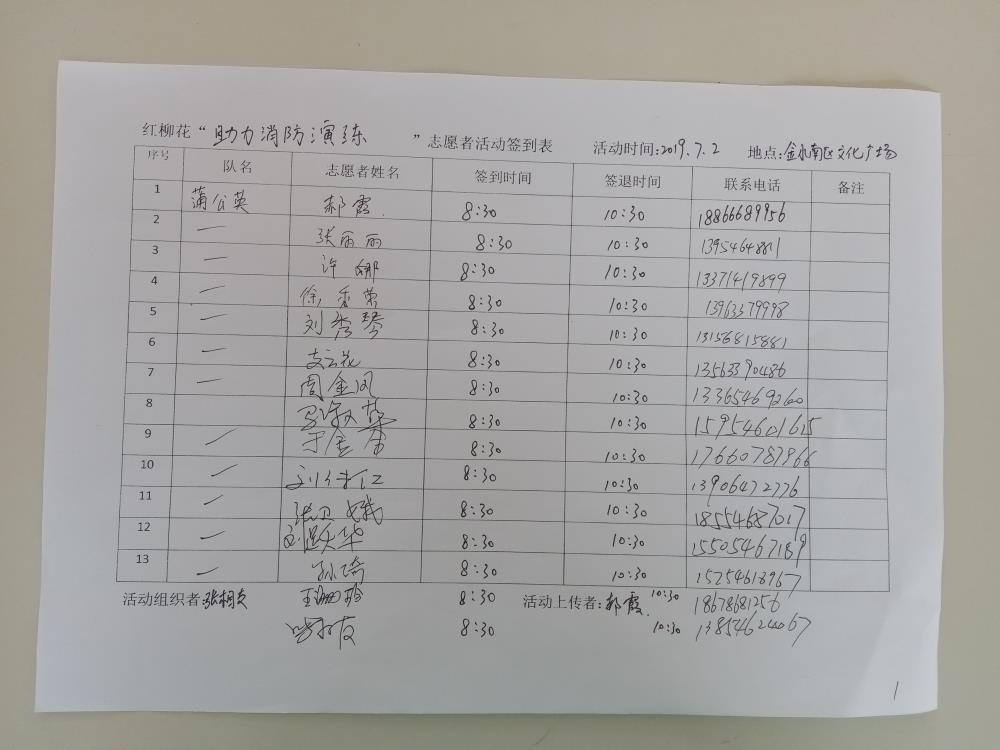 红柳花“助力消防演练”志愿者活动签到表 活动时间:2019.7.2 地点:金水南区文化广场
序号 队名 志愿者姓名 签到时间 签退时间 联系电话 备注
1 蒲公英 郝霞 8:30 10:30 18866689956
2 — 张丽丽 8:30 10:30 1395464881
3 — 许娜 8:30 10:30 13371419899
4 — 徐香荣 8:30 10:30 13963379998
5 — 刘秀琴 8:30 10:30 13156815881
6 — 支云花 8:30 10:30 13563390486
7 — 周金凤 8:30 10:30 13365469260
8 8:30 10:30 15954601615
9 — 于金 8:30 10:30 17660787966
10 — 8:30 10:30 13906472776
11 — 张卫娥 8:30 10:30 18554687017
12 — 刘跃华 8:30 10:30 15505467189
13 — 孙琦 8:30 10:30 15254618967
活动组织者: 8:30 活动上传者:郝霞. 10:30 18678681256
8:30 10:30 13854624067
1